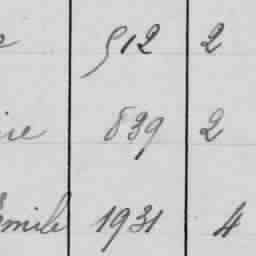 912 2
839 2
Emile 1931 4